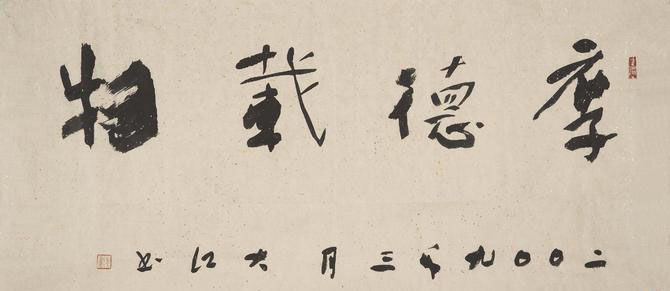 厚德載物
二〇〇九年三月大江书